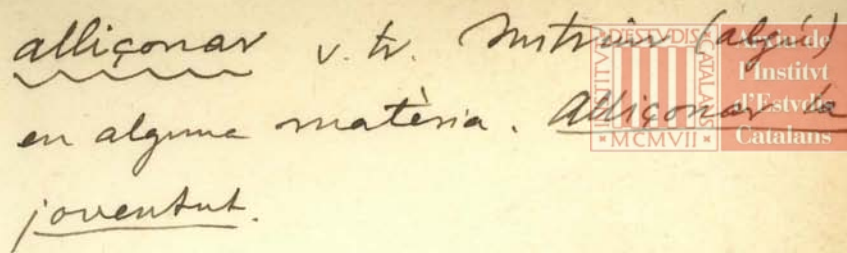 alliçonar v. tr. Instruir (algú)
en alguna matèria. Alliçonar la
joventut.
INSTITVT D'ESTVDIS CATALANS
MCMVII
Arxiu de
l'Institut
d'Estudis
Catalans